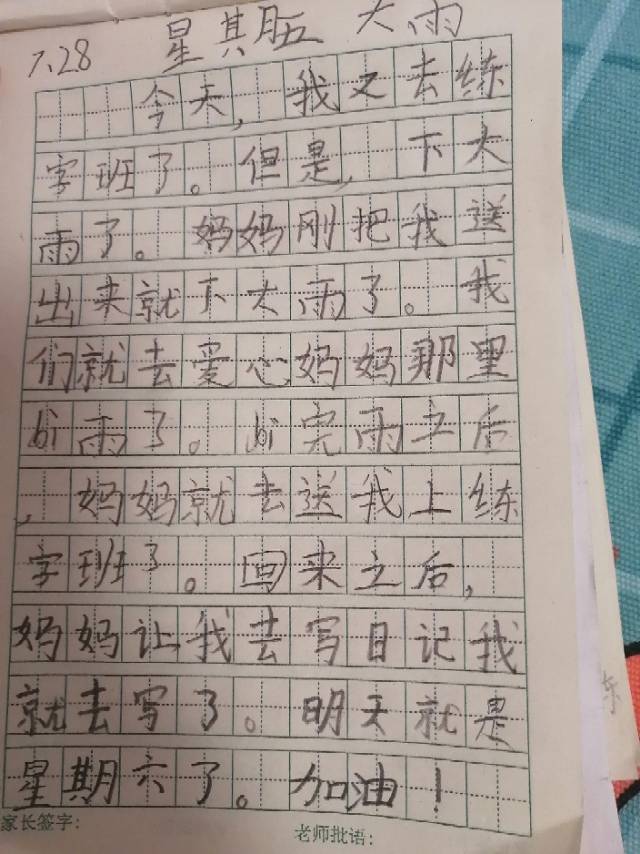 7.28 星期五 大雨
今天，我又去练
字班了。但是，下大
雨了。妈妈刚把我送
出来就下大雨了。我
们就去爱心妈妈那里
bi雨了。bi完雨之后
，妈妈就去送我上练
字班了。回来之后，
妈妈让我去写日记我
就去写了。明天就是
星期六了。加油！
家长签字： 老师批语：